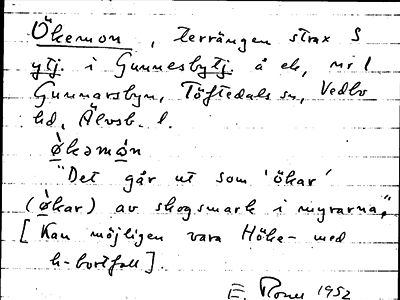 Ökemon, terrängen strax S
ytj. i Gunnesbytj. å ek, nr 1
Gunnarsbyn, Töftedals sn, Vedbo
hd, Älvsb. l.
ò̱kəmón
"Det går ut som 'ökar'
(ò̱kar) av skogsmark i myrarna",
[Kan möjligen vara Höke- med
h-bortfall].
E. 1952